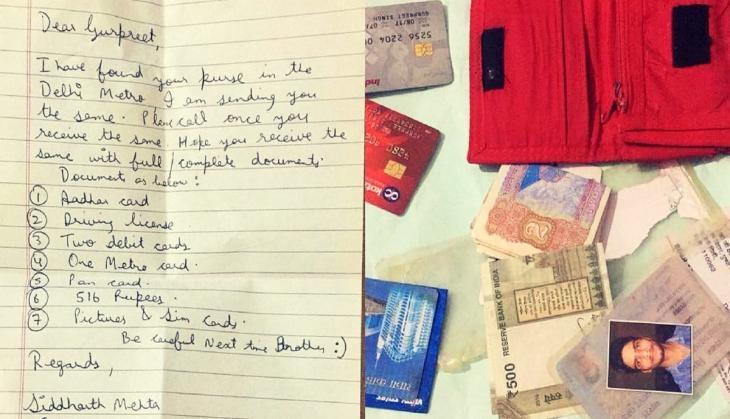 Dear Gurpreet,
I have found your purse in the
Delhi Metro. I am sending you
the same. Please call once you
receive the same. Hope you receive the
same with full/complete documents.
Documents as below:
1 Aadhar card
2 Driving license
3 Two debit cards
4 One Metro card.
5 Pan card.
6 516 Rupees.
7 Pictures & Sim Cards.
Be careful Next time Brother :)
Regards,
Siddharth Mehta
GURPREET SINGH
08/17
5256 2204
kota
₹500 RESERVE BANK OF INDIA